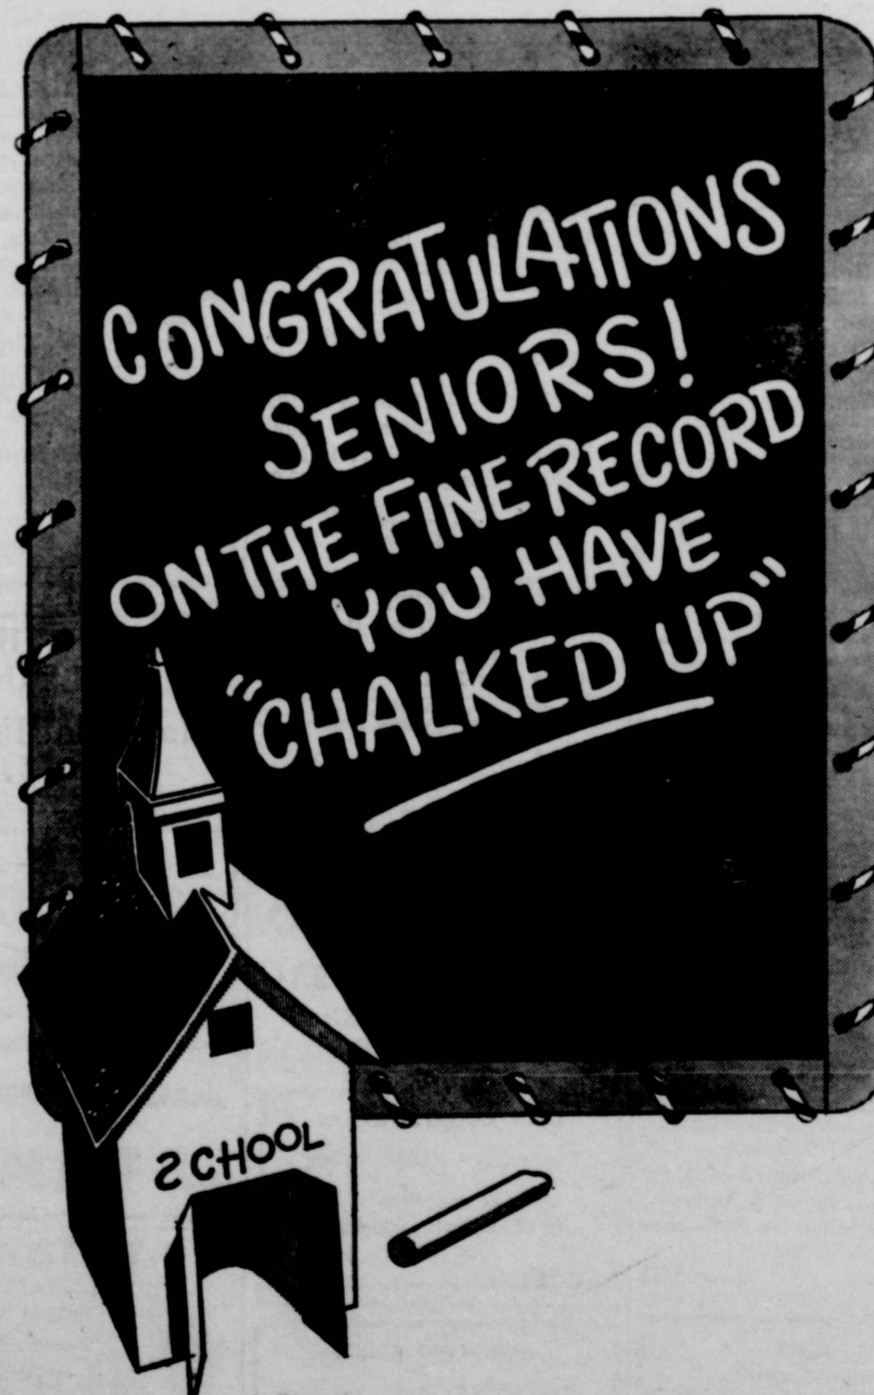 CONGRATULATIONS
SENIORS!
ON THE FINE RECORD
YOU HAVE
"CHALKED UP"
SCHOOL